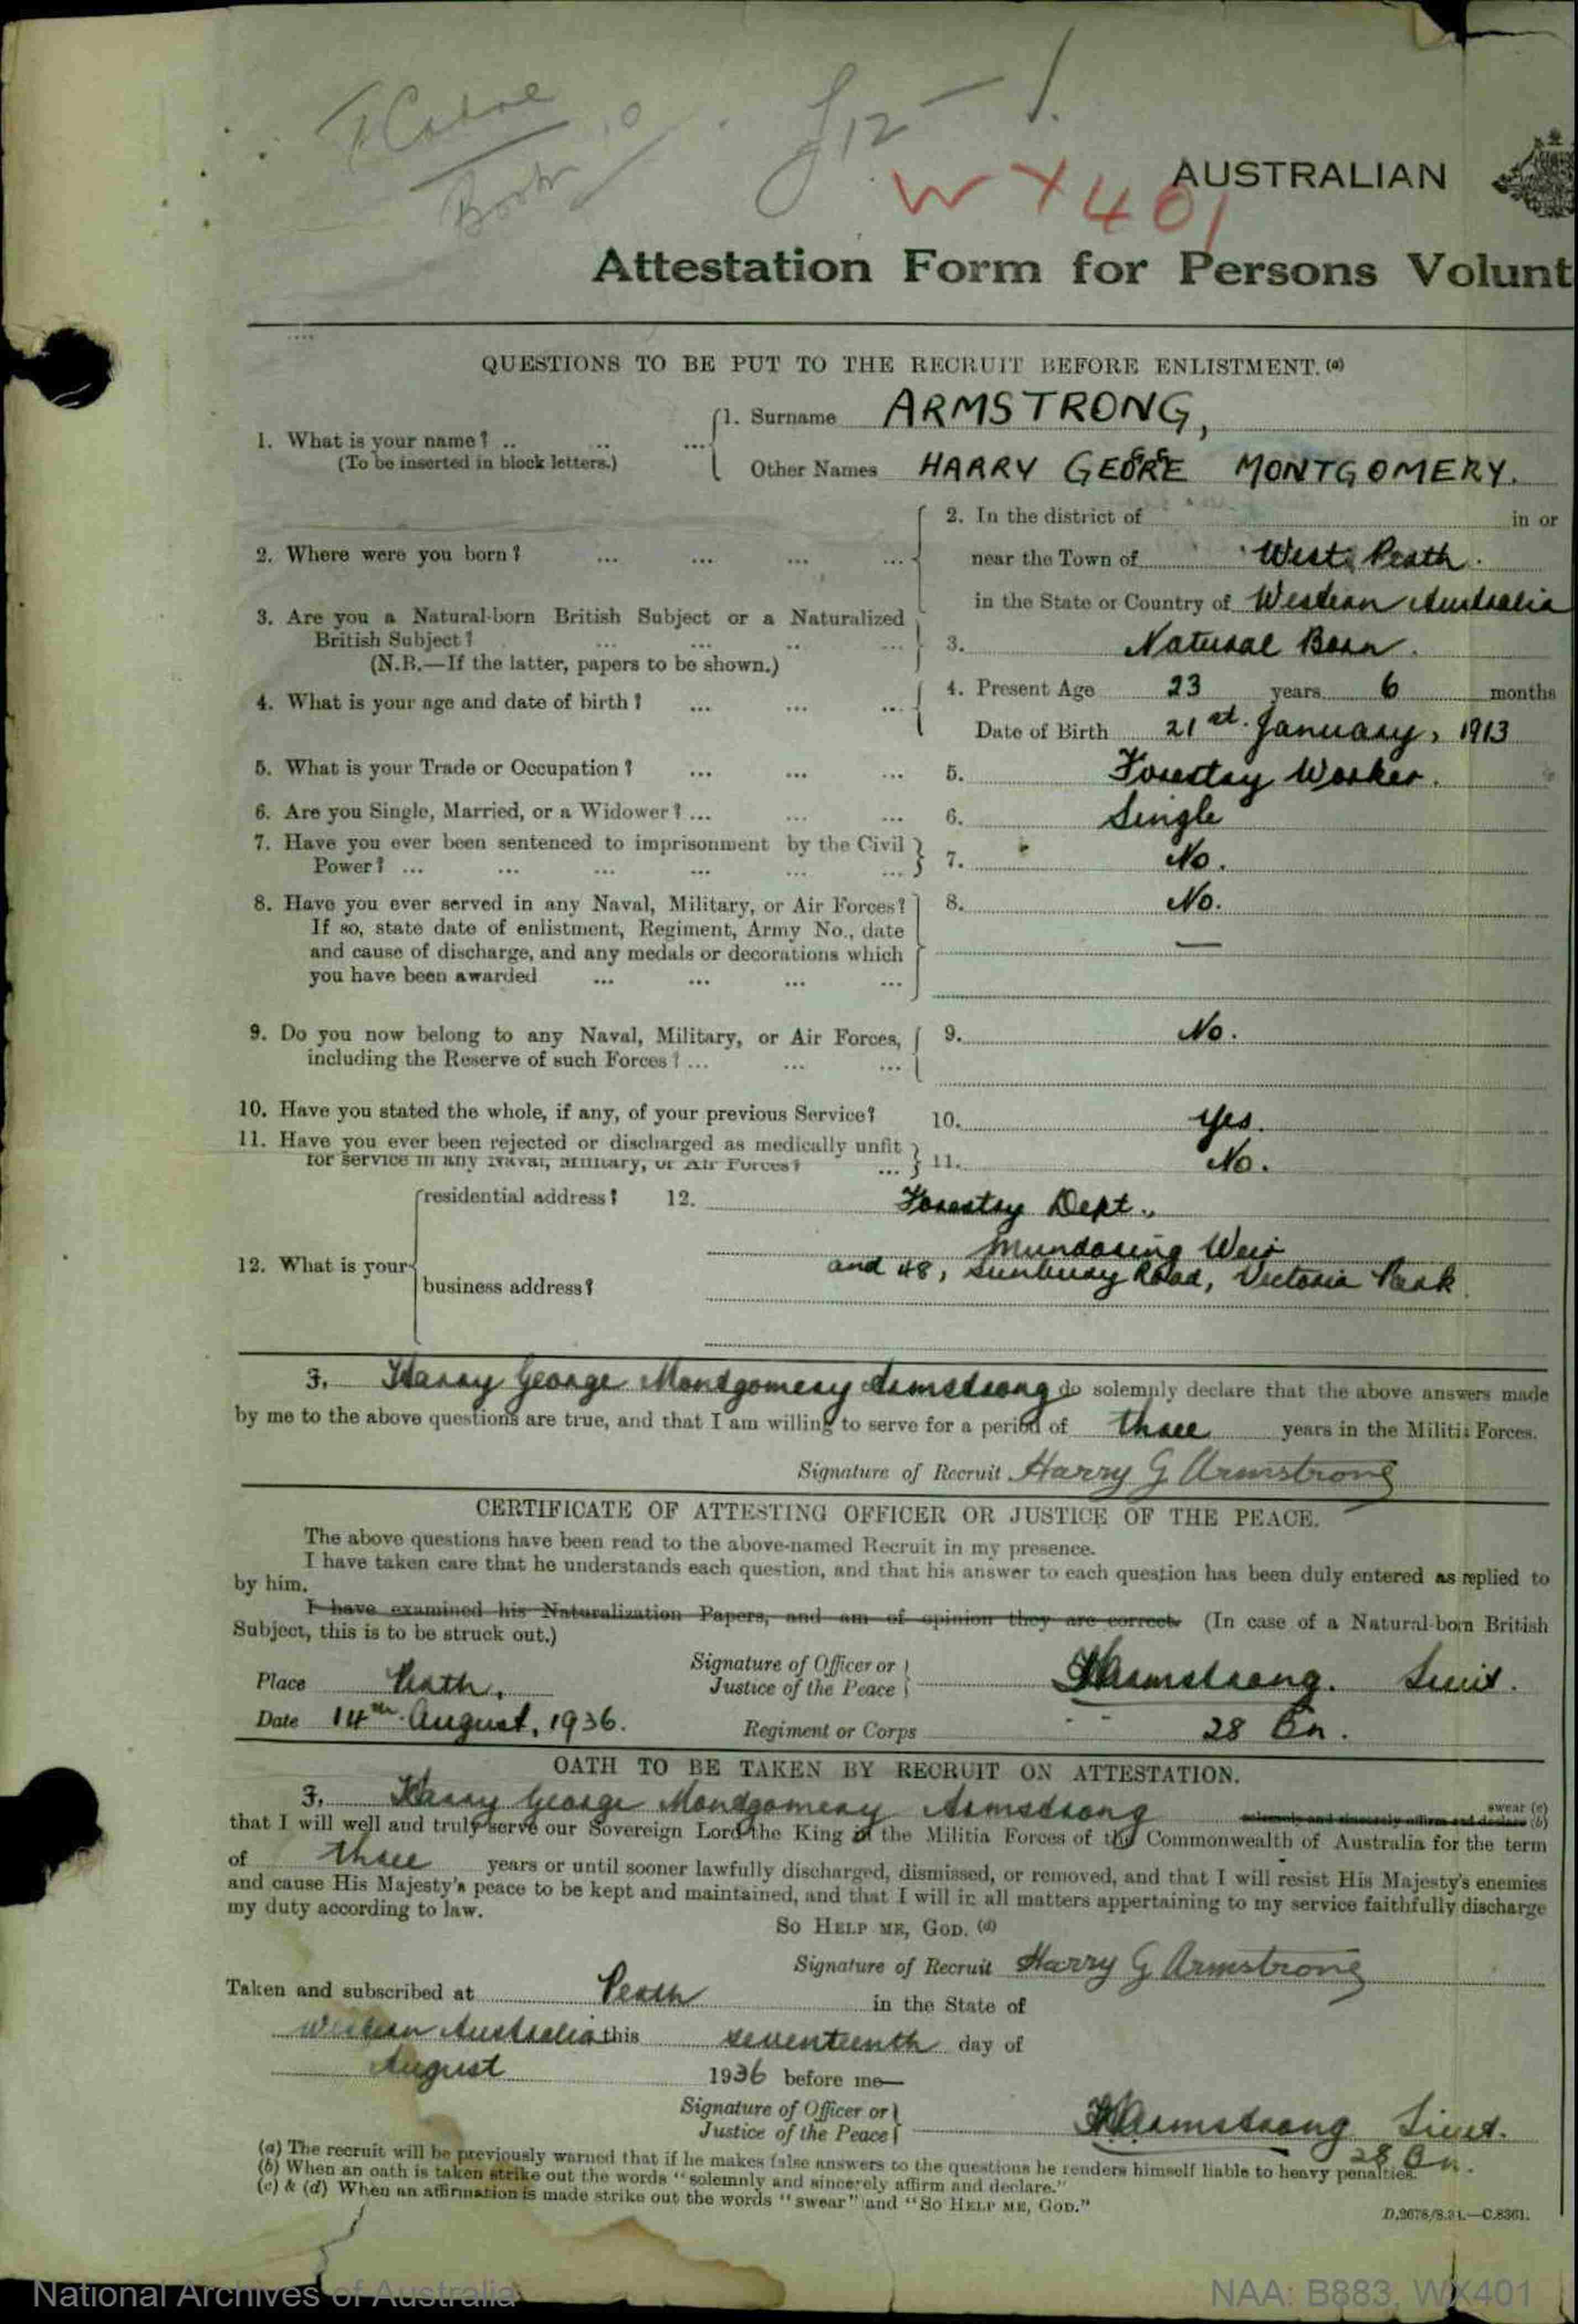 12
WX401
AUSTRALIAN
Attestation Form for Persons Volunt
QUESTIONS TO BE PUT TO THE RECRUIT BEFORE ENLISTMENT. (a)
1. What is your name? .. .. ... 1. Surname ARMSTRONG,
(To be inserted in block letters.) Other Names HARRY GEORGE MONTGOMERY.
2. In the district of in or
2. Where were you born? ... ... ... ... near the Town of West Perth.
in the State or Country of Western Australia
3. Are you a Natural-born British Subject or a Naturalized
British Subject? ... ... .. ... 3. Natural Born.
(N.B.—If the latter, papers to be shown.)
4. What is your age and date of birth? ... ... ... 4. Present Age 23 years 6 months
Date of Birth 21st. January, 1913
5. What is your Trade or Occupation? ... ... ... 5. Forestry Worker.
6. Are you Single, Married, or a Widower? ... ... ... 6. Single
7. Have you ever been sentenced to imprisonment by the Civil
Power? ... ... ... ... ... ... 7. No.
8. Have you ever served in any Naval, Military, or Air Forces? 8. No.
If so, state date of enlistment, Regiment, Army No., date
and cause of discharge, and any medals or decorations which —
you have been awarded ... ... ... ...
9. Do you now belong to any Naval, Military, or Air Forces, 9. No.
including the Reserve of such Forces? ... ... ...
10. Have you stated the whole, if any, of your previous Service? 10. Yes.
11. Have you ever been rejected or discharged as medically unfit
for service in any Naval, Military, or Air Forces? ... 11. No.
residential address? 12. Forestry Dept.,
Mundaring Weir
12. What is your and 48, Sunbury Road, Victoria Park
business address?
I, Harry George Montgomery Armstrong do solemnly declare that the above answers made
by me to the above questions are true, and that I am willing to serve for a period of three years in the Militia Forces.
Signature of Recruit Harry G Armstrong
CERTIFICATE OF ATTESTING OFFICER OR JUSTICE OF THE PEACE.
The above questions have been read to the above-named Recruit in my presence.
I have taken care that he understands each question, and that his answer to each question has been duly entered as replied to
by him.
I have examined his Naturalization Papers, and am of opinion they are correct. (In case of a Natural-born British
Subject, this is to be struck out.)
Signature of Officer or
Place Perth. Justice of the Peace Armstrong. Lieut.
Date 14th. August, 1936. Regiment or Corps 28 Bn.
OATH TO BE TAKEN BY RECRUIT ON ATTESTATION.
I, Harry George Montgomery Armstrong swear (c)
solemnly and sincerely affirm and declare (b)
that I will well and truly serve our Sovereign Lord the King in the Militia Forces of the Commonwealth of Australia for the term
of three years or until sooner lawfully discharged, dismissed, or removed, and that I will resist His Majesty's enemies
and cause His Majesty's peace to be kept and maintained, and that I will in all matters appertaining to my service faithfully discharge
my duty according to law.
SO HELP ME, GOD. (d)
Signature of Recruit Harry G Armstrong
Taken and subscribed at Perth in the State of
Western Australia this seventeenth day of
August 1936 before me—
Signature of Officer or
Justice of the Peace Armstrong Lieut.
28 Bn.
(a) The recruit will be previously warned that if he makes false answers to the questions he renders himself liable to heavy penalties.
(b) When an oath is taken strike out the words "solemnly and sincerely affirm and declare."
(c) & (d) When an affirmation is made strike out the words "swear" and "SO HELP ME, GOD."
D.2678/8.31.—C.8361.
National Archives of Australia
NAA: B883, WX401